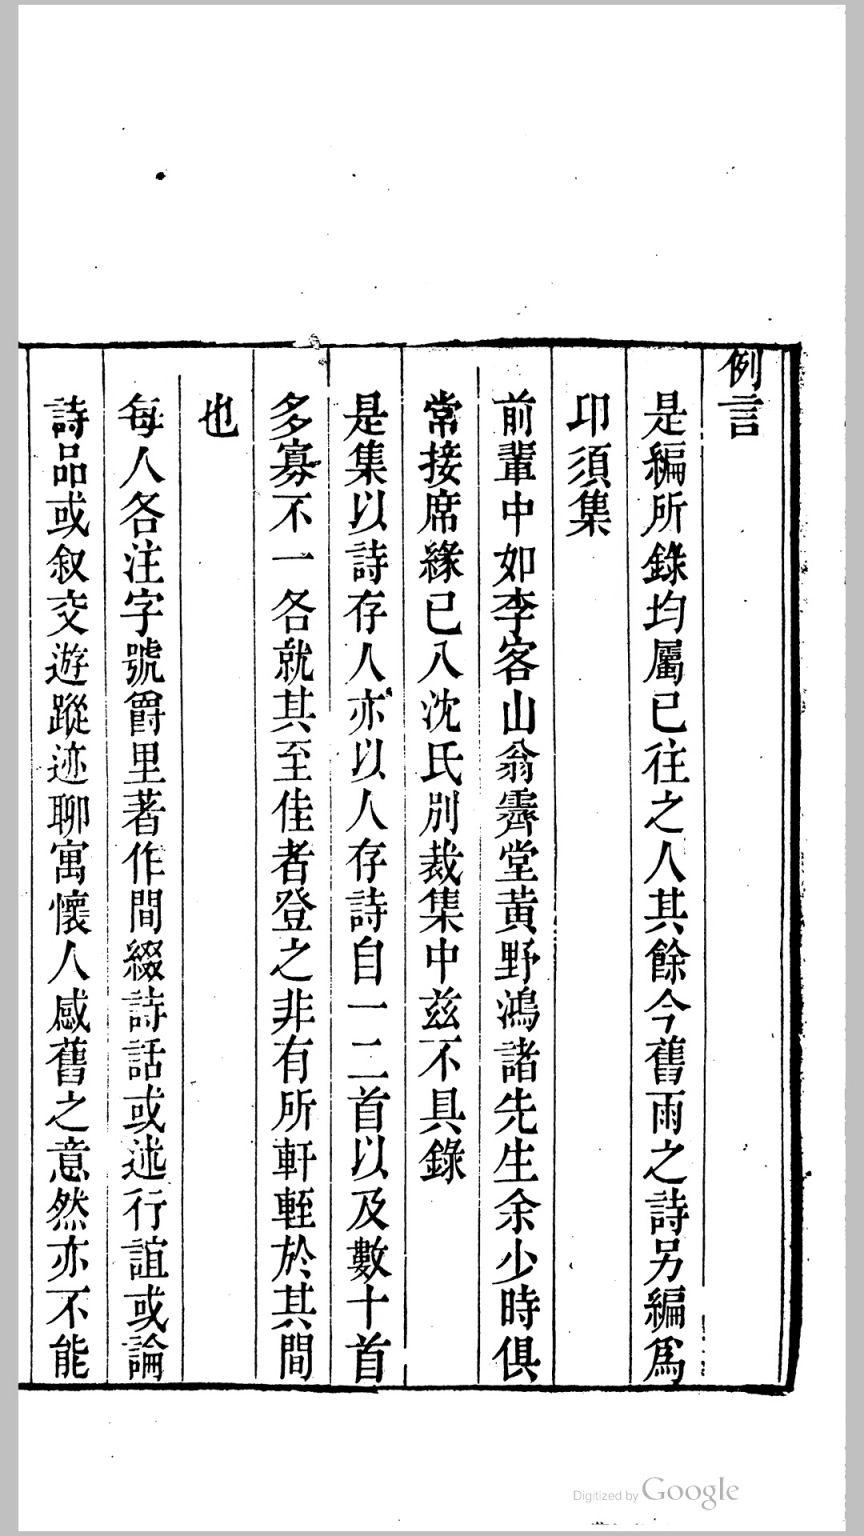 例言
是編所錄均屬已往之人其餘今舊雨之詩另編爲
卬須集
前輩中如李客山翁霽堂黃野鴻諸先生余少時俱
常接席緣已入沈氏別裁集中茲不具錄
是集以詩存人亦以人存詩自一二首以及數十首
多寡不一各就其至佳者登之非有所軒輊於其間
也
每人各注字號爵里著作間綴詩話或述行誼或論
詩品或叙交遊蹤迹聊寓懷人感舊之意然亦不能
Digitized by Google